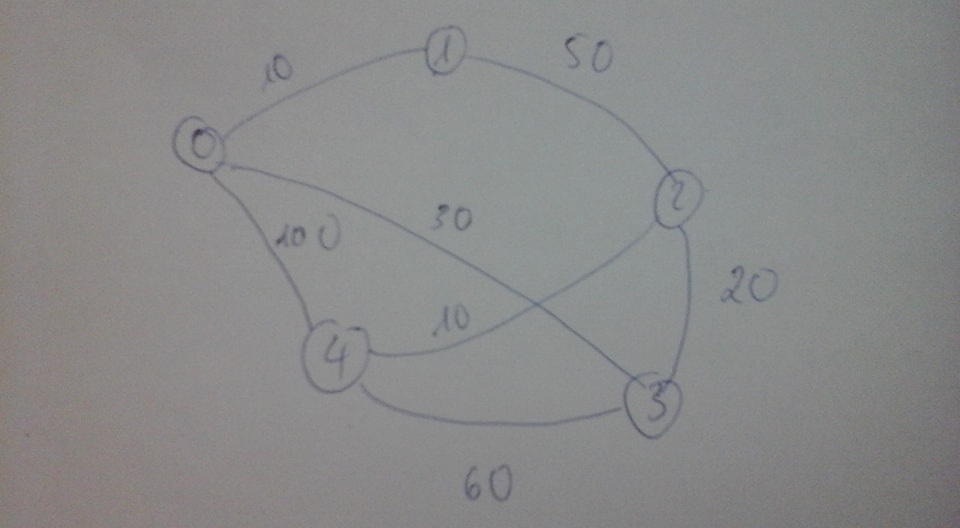 1
50
10
0
2
30
100
20
10
4
3
60